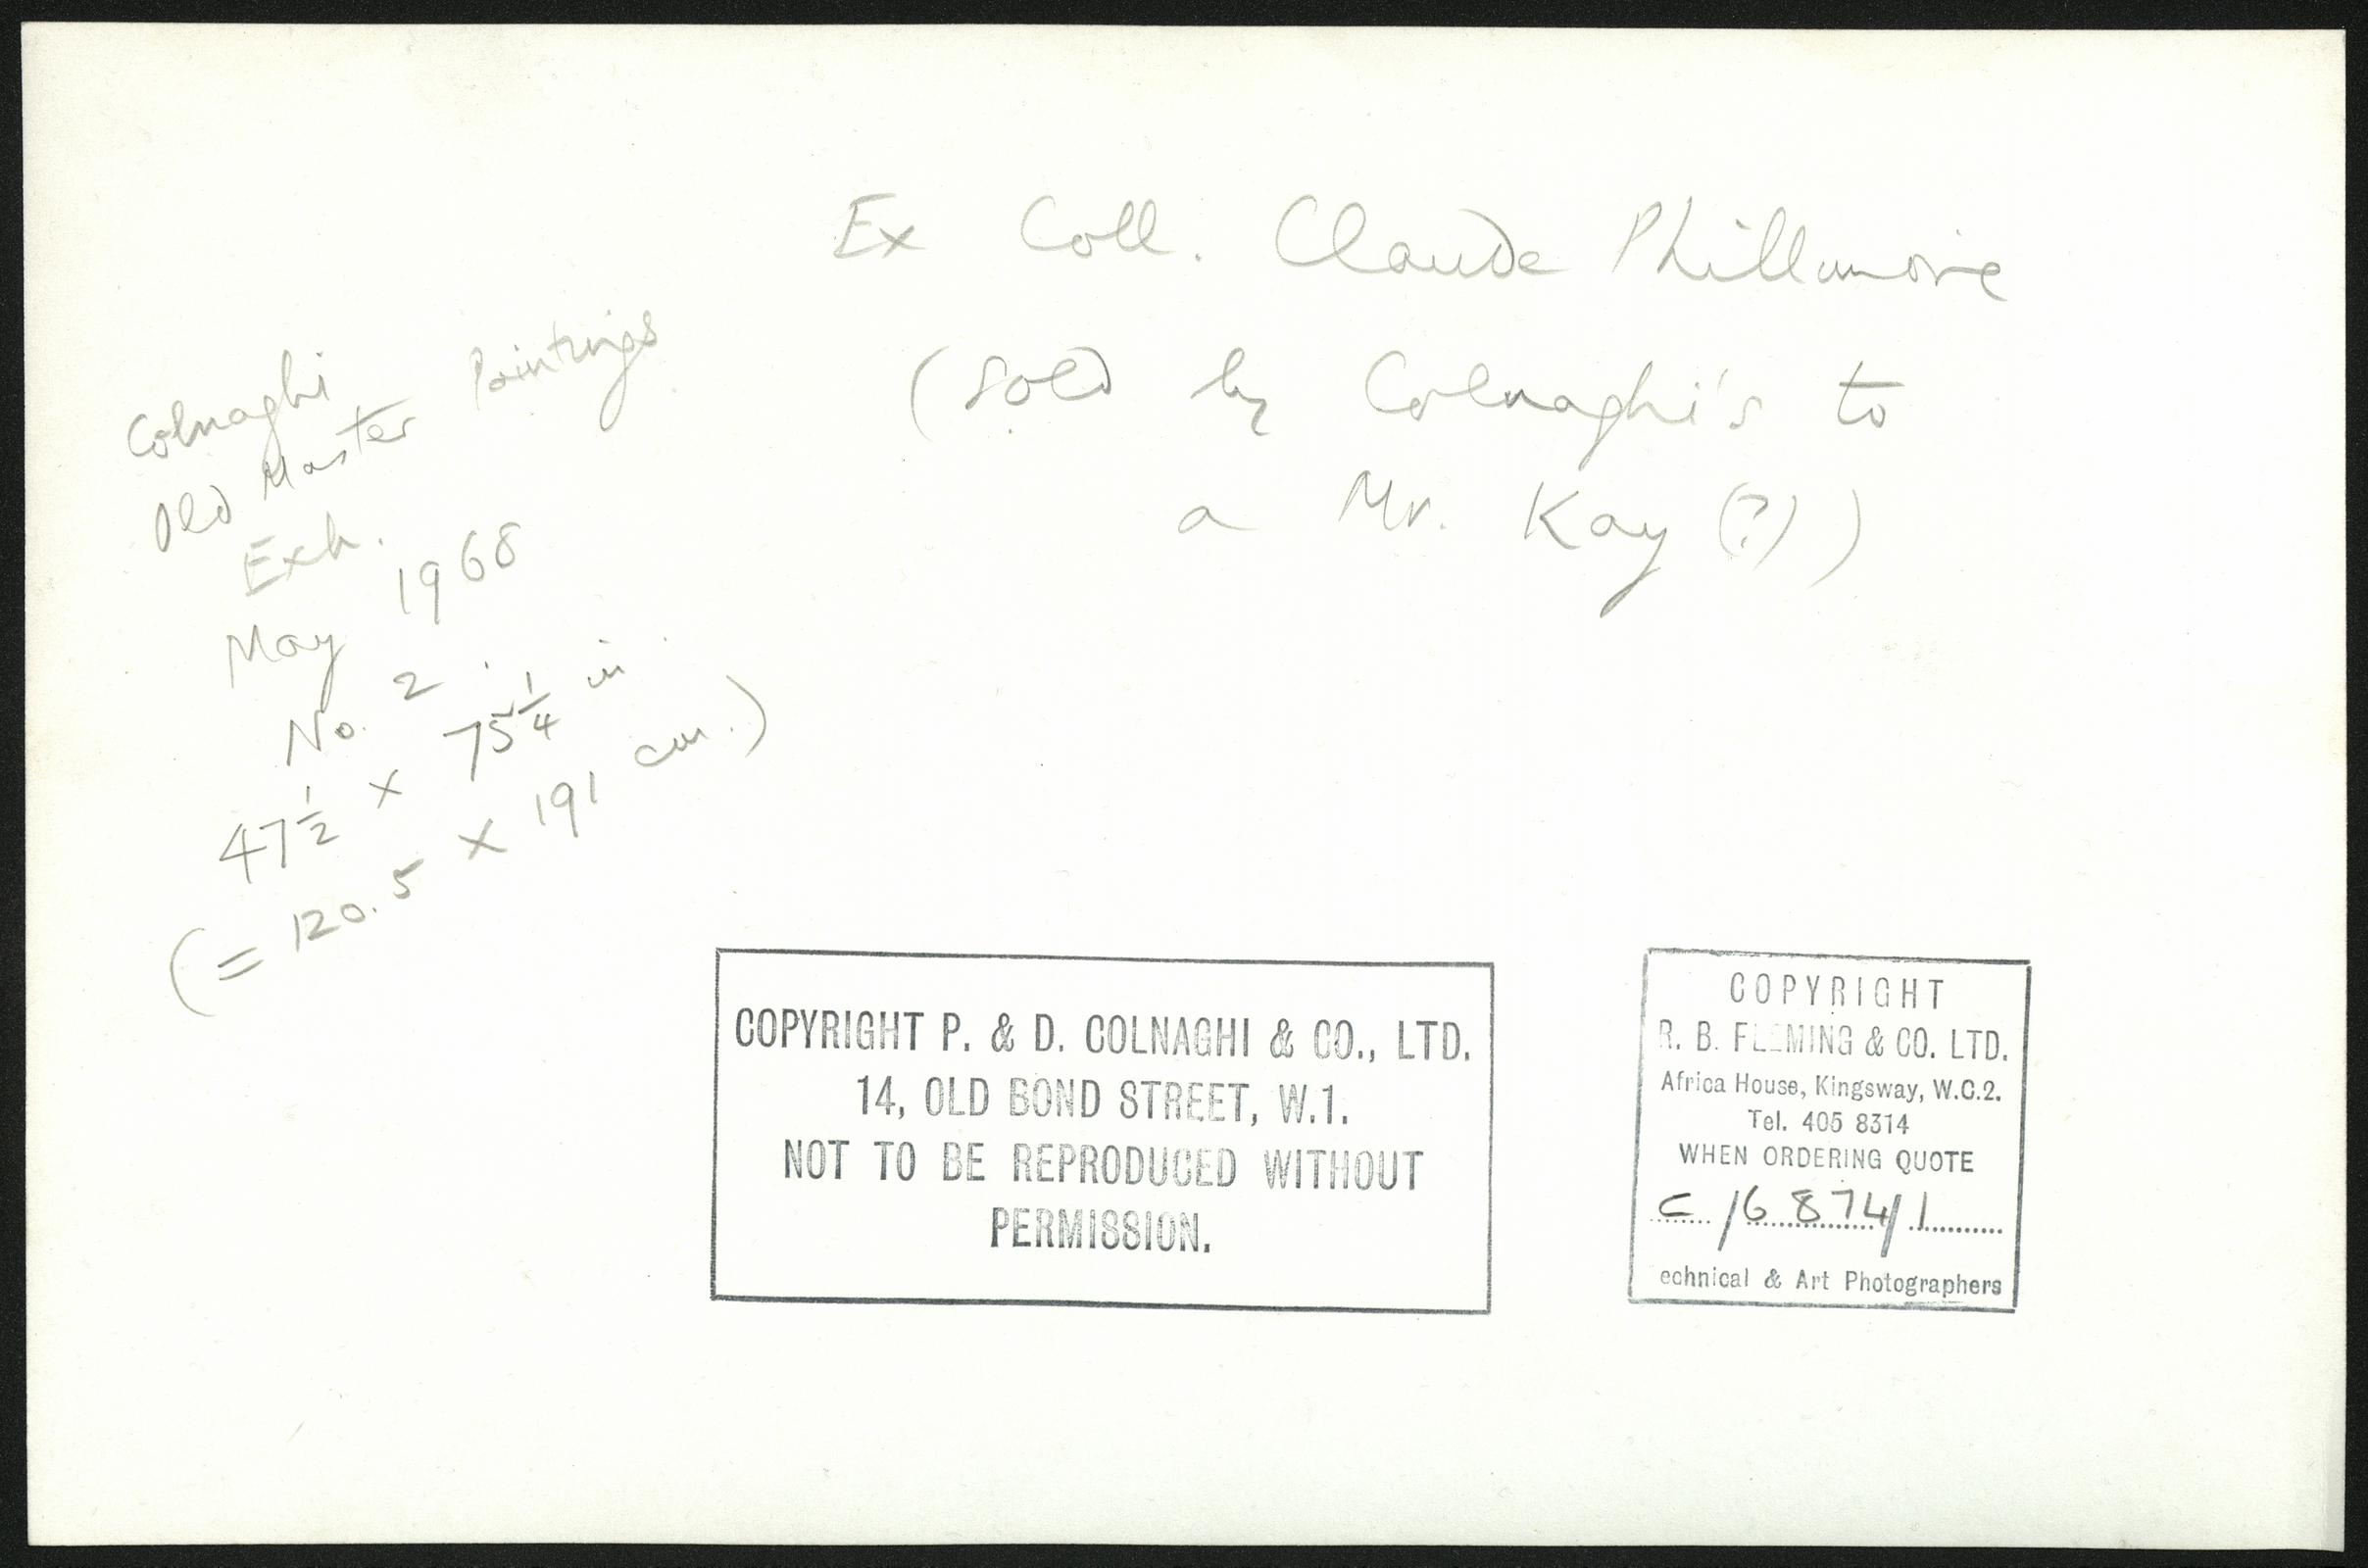 Ex Coll. Claude Phillimore
(sold by Colnaghi's to
a Mr. Kay (?))
Colnaghi
Old Master Paintings
Exh.
May 1968
No. 2.
47½ × 75¼ in.
(= 120.5 × 191 cm.)
COPYRIGHT P. & D. COLNAGHI & CO., LTD.
14, OLD BOND STREET, W.1.
NOT TO BE REPRODUCED WITHOUT
PERMISSION.
COPYRIGHT
R. B. FLEMING & CO. LTD.
Africa House, Kingsway, W.C.2.
Tel. 405 8314
WHEN ORDERING QUOTE
C/6874/1
echnical & Art Photographers